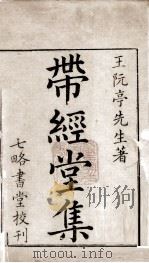 王阮亭先生著
帶經堂集
七略書堂校刊